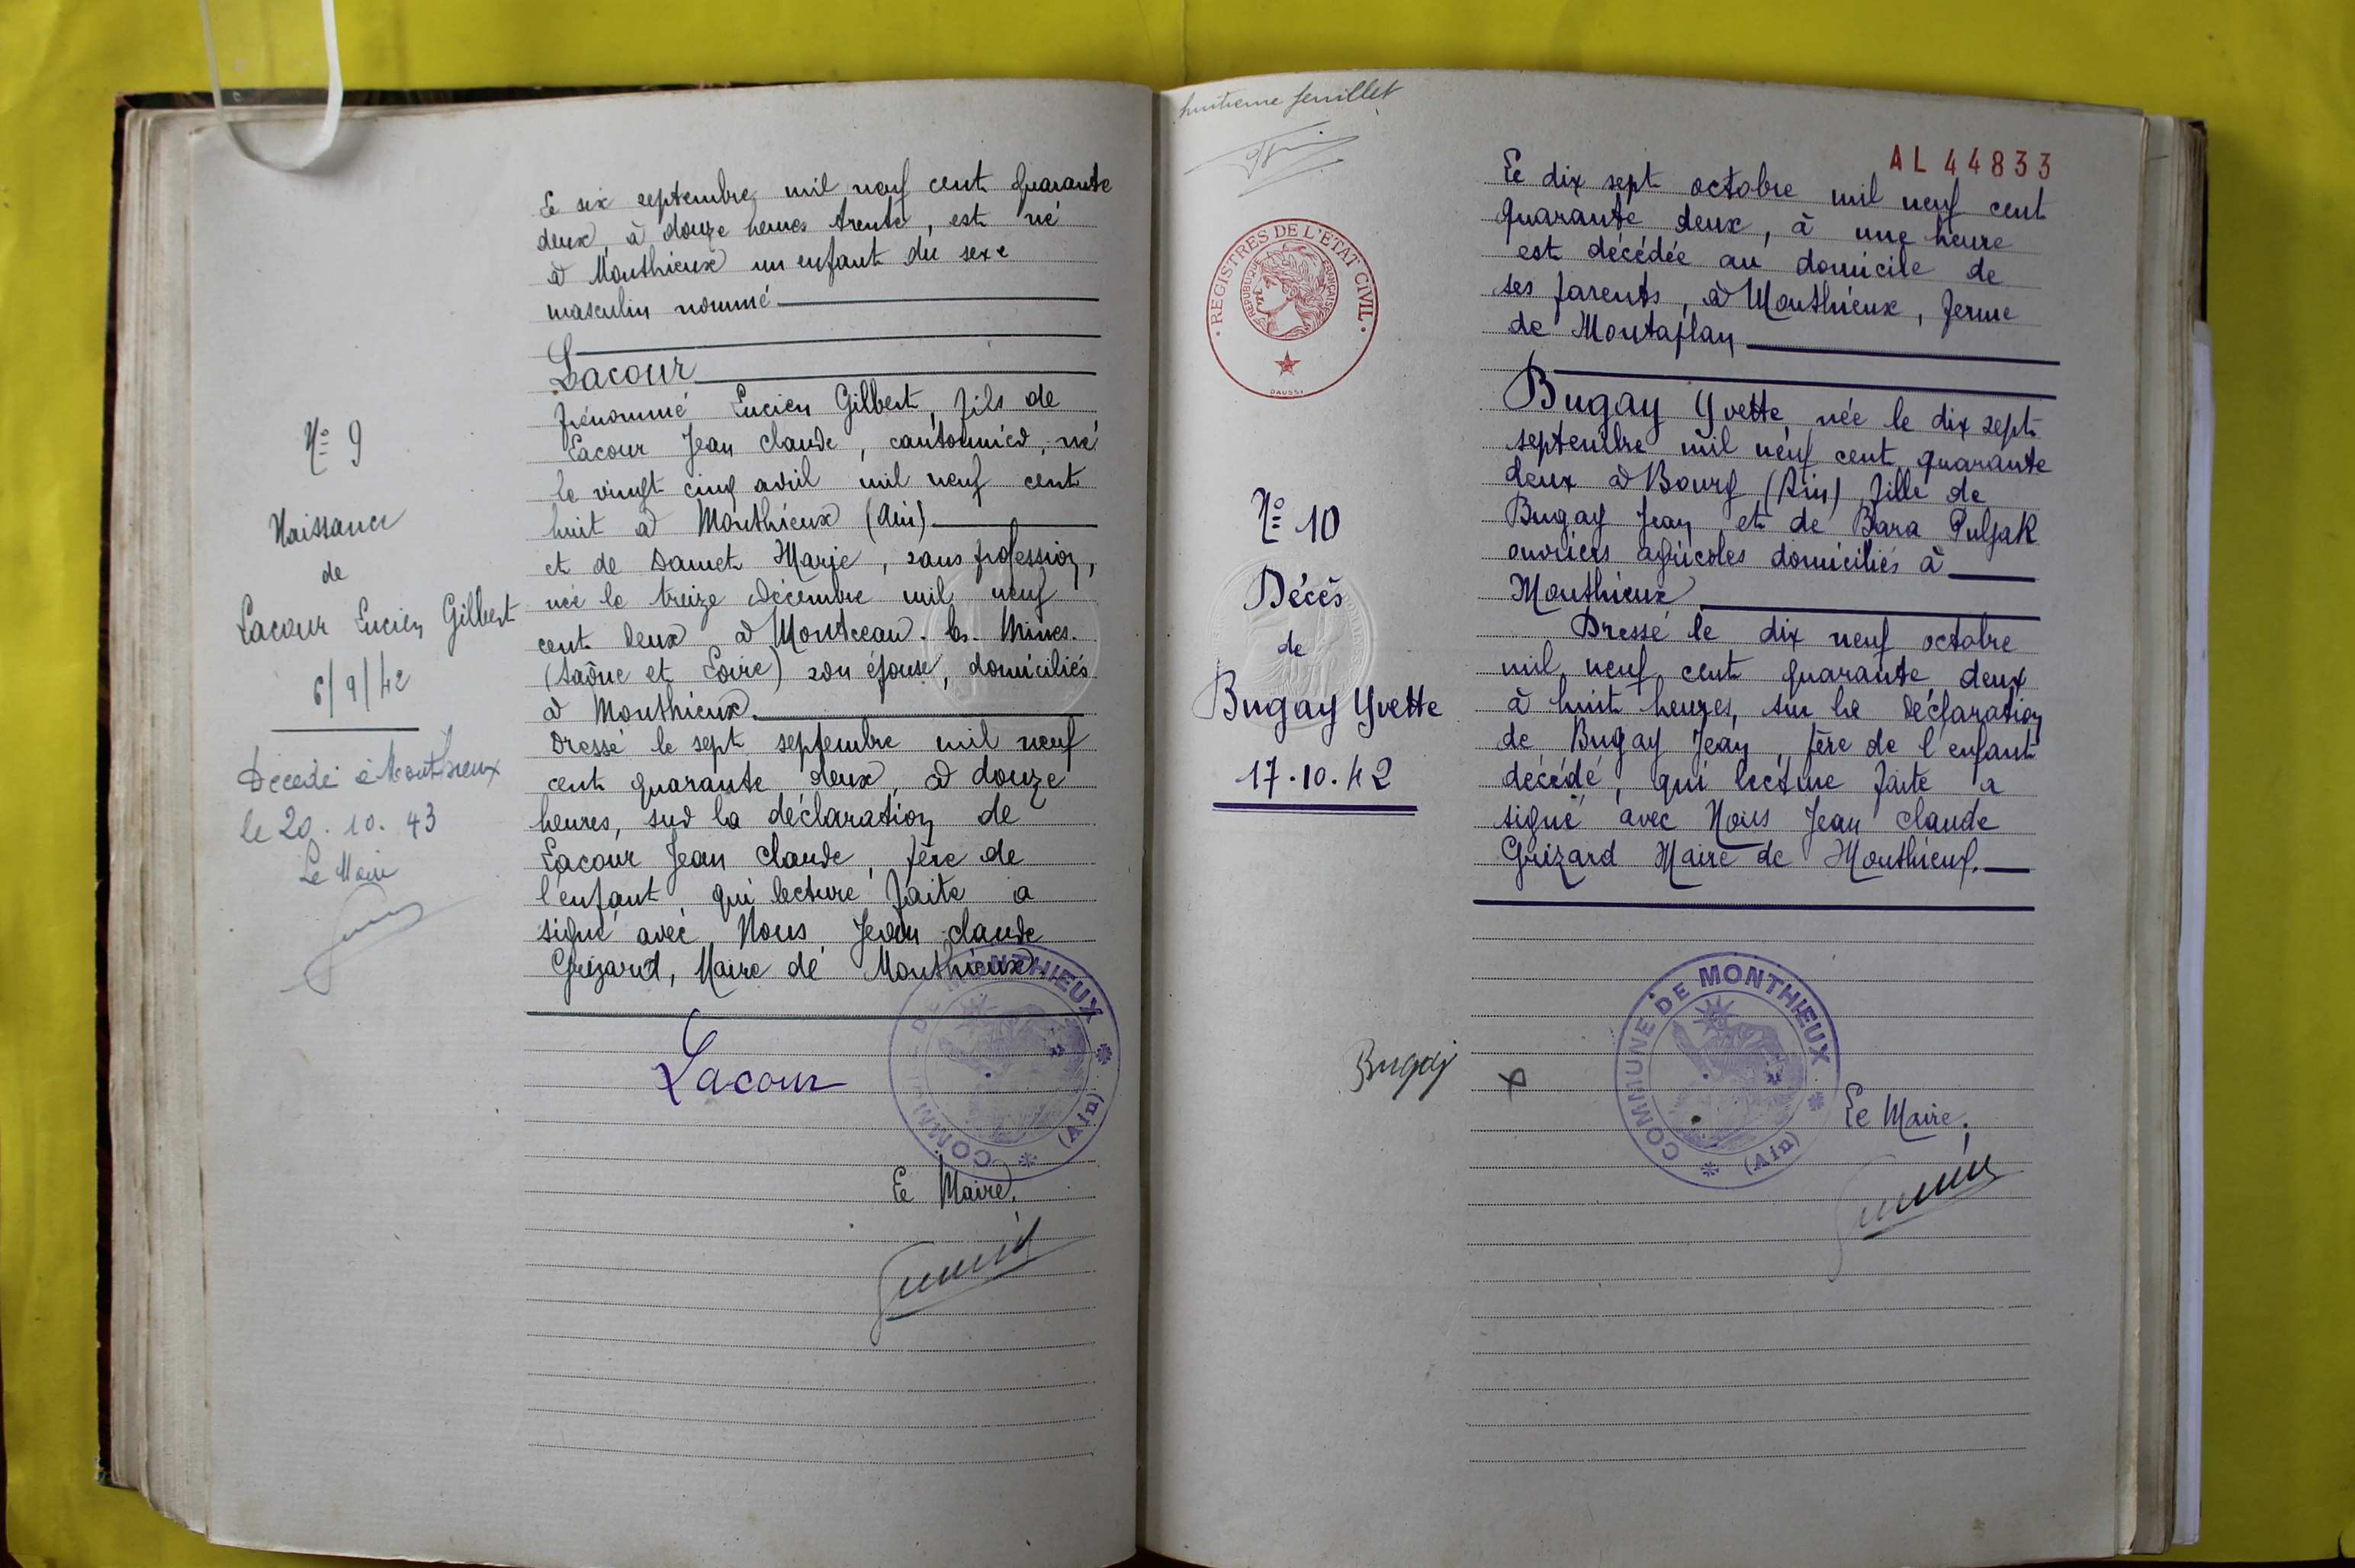 N° 9
Naissance
de
Lacour Lucien Gilbert
6/9/42
Décédé à Monthieux
le 20. 10. 43
Le Maire
Le six septembre mil neuf cent quarante
deux, à douze heures trente, est né
à Monthieux un enfant du sexe
masculin nommé
Lacour
prénommé Lucien Gilbert, fils de
Lacour Jean Claude, cantonnier, né
le vingt cinq avril mil neuf cent
huit à Monthieux (Ain)
et de Marie, sans profession,
née le treize décembre mil neuf
cent deux à Montceau-les-Mines.
(Saône et Loire) son épouse, domiciliés
à Monthieux.
Dressé le sept septembre mil neuf
cent quarante deux, à douze
heures, sur la déclaration de
Lacour Jean Claude, père de
l'enfant, qui lecture faite a
signé avec Nous Jean Claude
Grizard, Maire de Monthieux.
Lacour
COMMUNE DE MONTHIEUX
(Ain)
Le Maire,
huitième feuillet
REGISTRES DE L'ÉTAT CIVIL
RÉPUBLIQUE FRANÇAISE
DAUSSY
N° 10
Décès
de
Bugay Yvette
17.10.42
AL 44833
Le dix sept octobre mil neuf cent
quarante deux, à une heure
est décédée au domicile de
ses parents, à Monthieux, ferme
de Montaplan
Bugay Yvette, née le dix sept
septembre mil neuf cent quarante
deux à Bourg (Ain) fille de
Bugay Jean et de Bara Puljak
ouvriers agricoles domiciliés à
Monthieux
Dressé le dix neuf octobre
mil neuf cent quarante deux
à huit heures, sur la déclaration
de Bugay Jean, père de l'enfant
décédé, qui lecture faite a
signé avec Nous Jean Claude
Grizard Maire de Monthieux.
Bugay
COMMUNE DE MONTHIEUX
(Ain)
Le Maire,